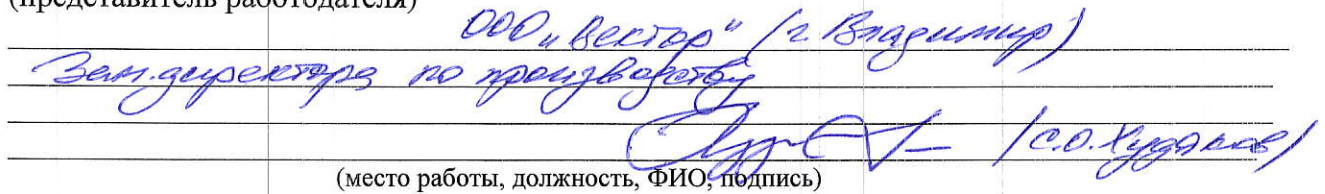 (представитель работодателя)
ООО "Вектор" (г. Владимир)
Зам.директора по производству
(С.О. Худяков)
(место работы, должность, ФИО, подпись)